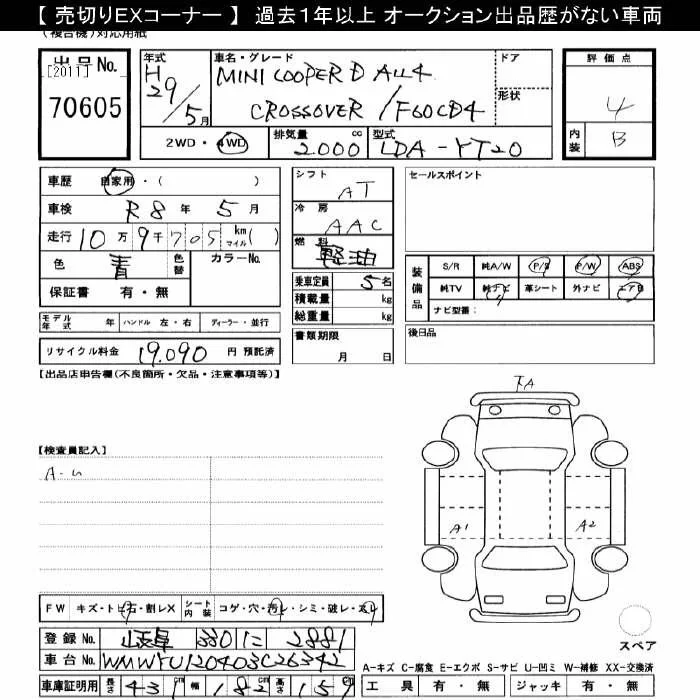 【 売切りEXコーナー 】 過去1年以上 オークション出品歴がない車両
(複合機)対応用紙
出品No.
[2011]
70605
年式
H 29/5月
車名・グレード
MINI COOPER D ALL4
CROSSOVER /F60CD4
ドア
形状
2WD・4WD
排気量 2.000 cc
型式 LDA-YT20
評価点
4
内装 B
車歴 自家用・( )
車検 R8年 5月
走行 10万9千705 km マイル( )
色 青 色替 カラーNo.
保証書 有・無
モデル年式 年 ハンドル 左・右 ディーラー・並行
リサイクル料金 19.090 円 預託済
シフト AT
冷房 AAC
燃料 軽油
乗車定員 5名
積載量 kg
総重量 kg
書類期限
月 日
セールスポイント
装備品
S/R 純A/W P/S P/W ABS
純TV 純ナビ 革シート 外ナビ エアB
ナビ型番:
後日品
【出品店申告欄(不良箇所・欠品・注意事項等)】
【検査員記入】
A-U
A1
A2
FW キズ・トビ石・割レX シート内装 コゲ・穴・汚レ・シミ・破レ・スレ
登録No. 岐阜 330 に 2881
車台No. WMWYU120403C26342
車庫証明用 長さ 431cm 幅 182cm 高さ 159
スペア
A-キズ C-腐食 E-エクボ S-サビ U-凹ミ W-補修 XX-交換済
工具 有・無 ジャッキ 有・無